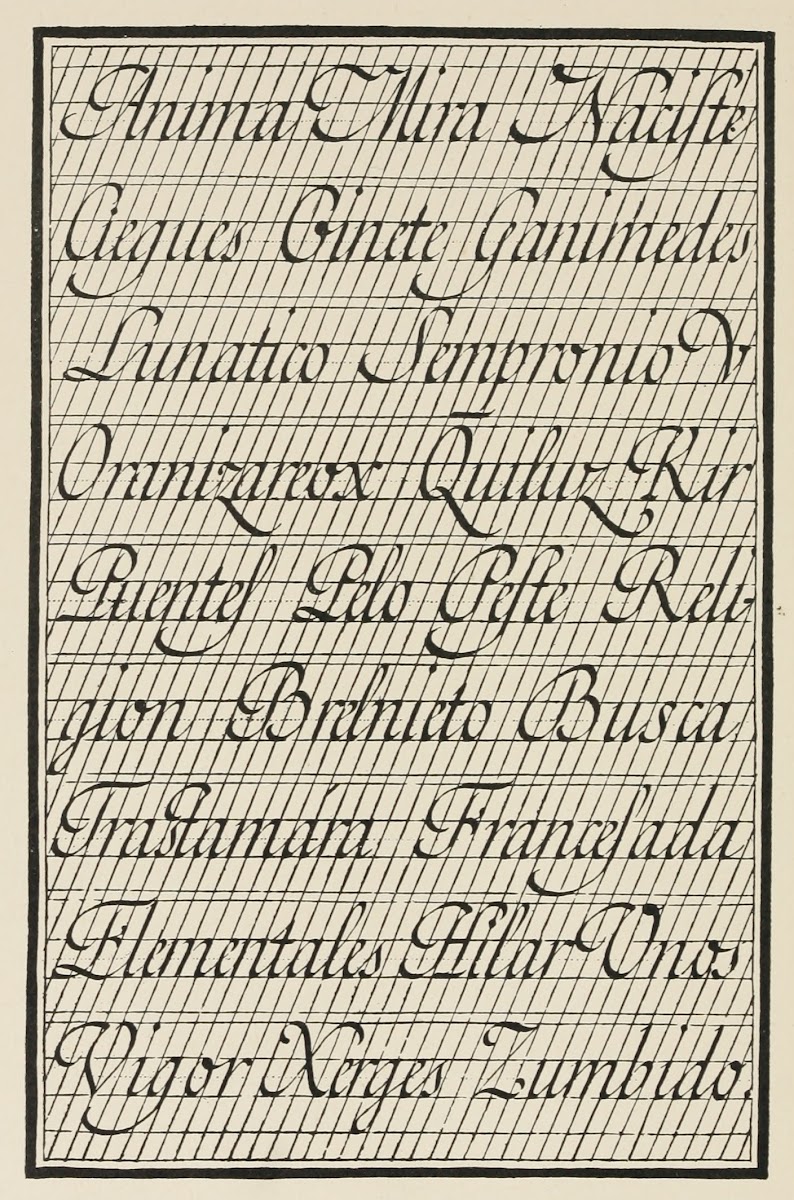 Anima Mira Naciste
Ciegues Ginete Ganimedes
Lunatico Sempronio V
Oranizareox Quiluz Kir
Puentes Pelo Peste Reli-
gion Brelnieto Busca
Trastamára Francesada
Elementales Hilar Vnos
Vigor Xerges Zumbido.